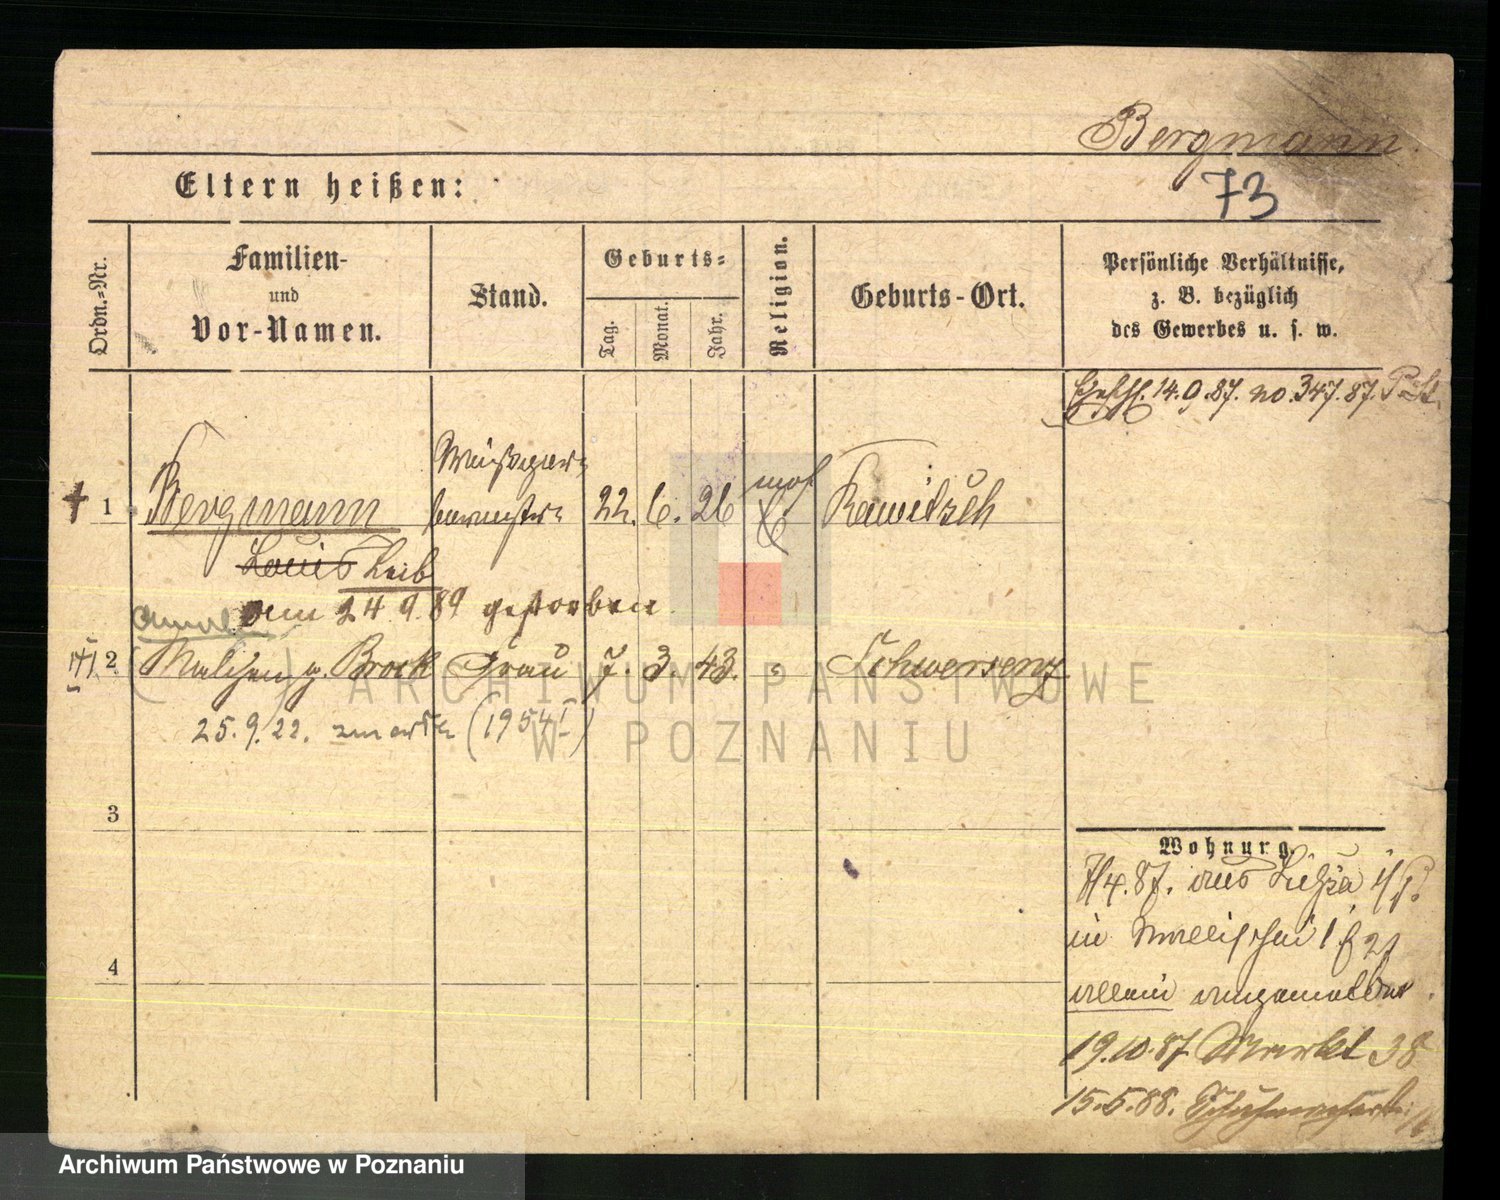 Bergmann
Eltern heißen:
73
Ordn.-Nr.
Familien-
und
Vor-Namen.
Stand.
Geburts-
Tag.
Monat.
Jahr.
Religion.
Geburts-Ort.
Persönliche Verhältnisse,
z. B. bezüglich
des Gewerbes u. s. w.
14.9.87. no. 347.87.
1 Bergmann 22. 6. 26 mos Rawitsch
Louis Leib
am 24 9. 89 gestorben
2 Malchen g. Brock Frau 7. 3. 43. Schwersenz
25. 9. 22. (1954 I)
3
4
Wohnung.
7/4.87. aus
in Wallischei
allein angemeldet
19.10.87 Markt 38
15.5.88.
ARCHIWUM PAŃSTWOWE
W POZNANIU
Archiwum Państwowe w Poznaniu